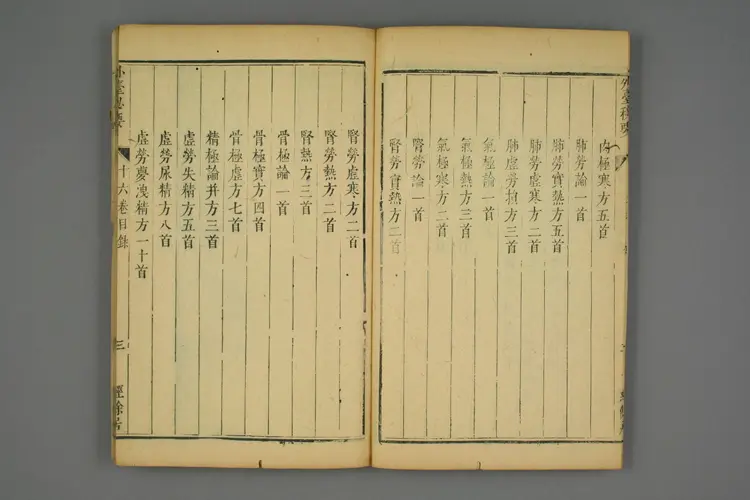 肉極寒方五首
肺勞論一首
肺勞實熱方五首
肺勞虛寒方二首
肺虛勞損方三首
氣極論一首
氣極熱方三首
氣極寒方二首
腎勞論一首
腎勞實熱方二首
腎勞虛寒方二首
腎勞熱方二首
腎熱方三首
骨極論一首
骨極實方四首
骨極虛方七首
精極論并方三首
虛勞失精方五首
虛勞尿精方八首
虛勞夢洩精方一十首
外臺秘要
十六卷目錄
三
經餘居